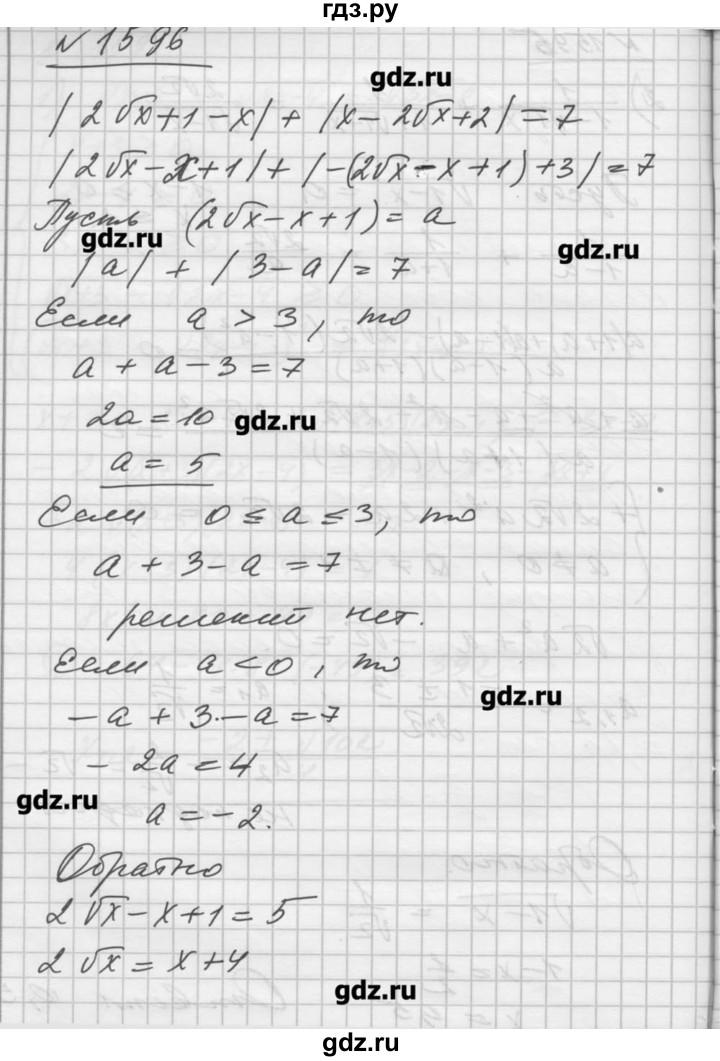 гдз.ру
№ 1596
gdz.ru
|2√x+1-x| + |x-2√x+2| = 7
|2√x-x+1| + |-(2√x-x+1)+3| = 7
Пусть (2√x-x+1) = a
gdz.ru
gdz.ru
|a| + |3-a| = 7
Если a > 3, то
a + a - 3 = 7
2a = 10
gdz.ru
a = 5
Если 0 ≤ a ≤ 3, то
a + 3 - a = 7
решений нет.
Если a < 0, то
gdz.ru
-a + 3 - a = 7
- 2a = 4
gdz.ru
a = -2.
Обратно
2√x - x + 1 = 5
2√x = x + 4
gdz.ru
gdz.ru